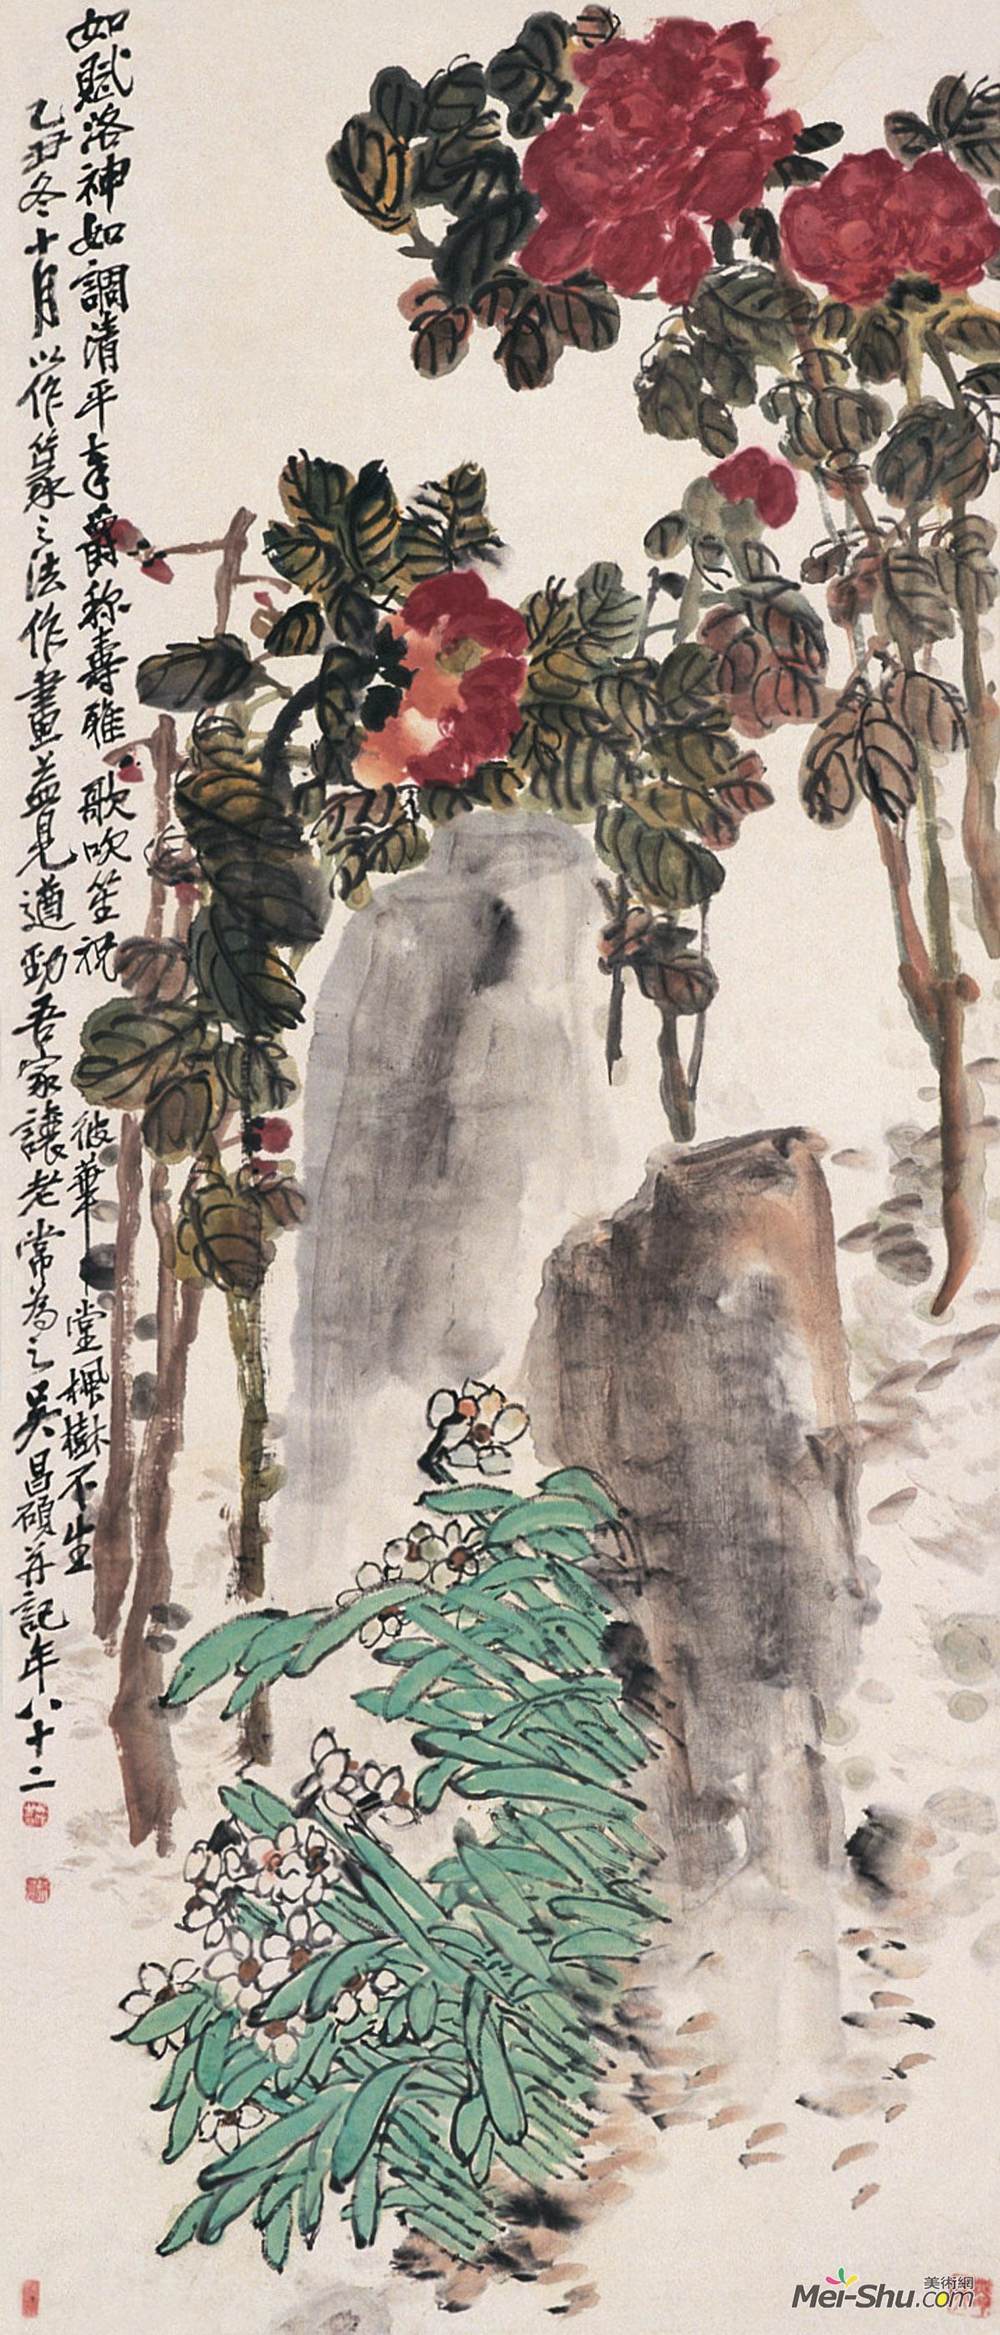 如賦洛神如調清平奉爵称壽雅歌吹笙祝
彼華堂楓樹不生
乙丑冬十月以作篆之法作畫益見遒勁吾家讓老常為之吳昌碩并記年八十二
美術網
Mei-Shu.com